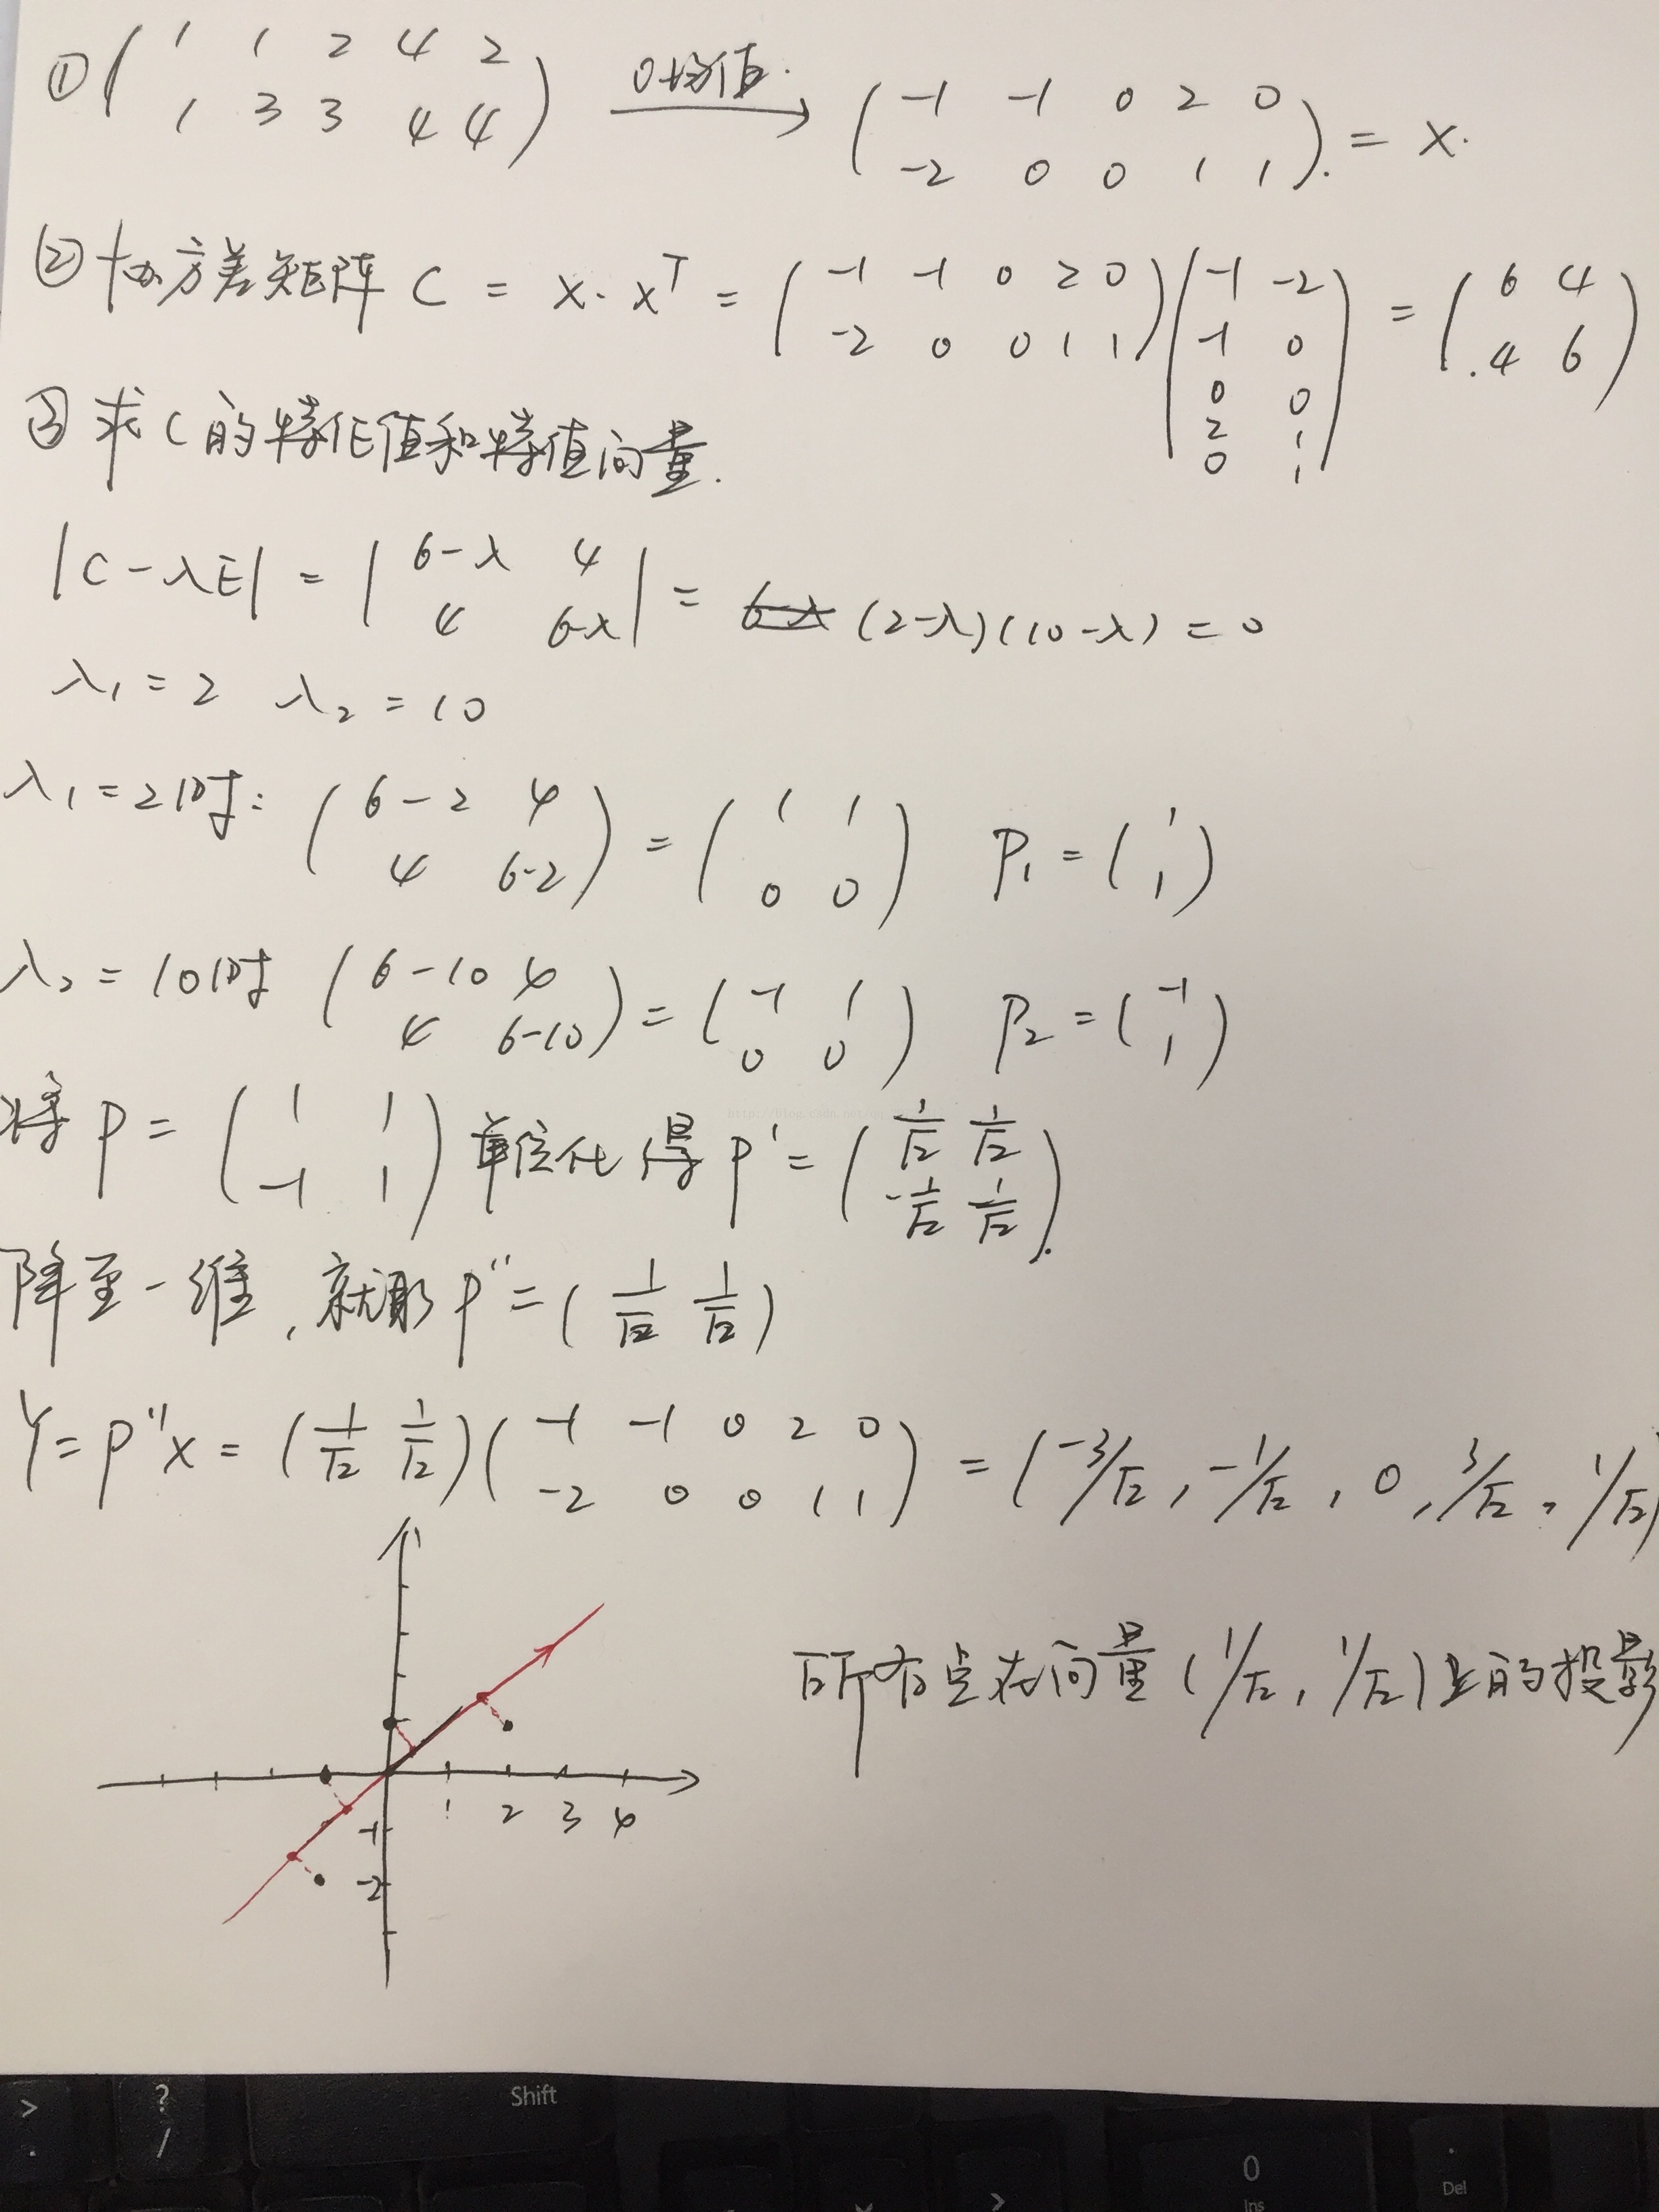 ① ( 1 1 2 4 2 ; 1 3 3 4 4 ) 0均值 → ( -1 -1 0 2 0 ; -2 0 0 1 1 ) = X.
② 协方差矩阵 C = X·X^T = ( -1 -1 0 2 0 ; -2 0 0 1 1 )( -1 -2 ; -1 0 ; 0 0 ; 2 1 ; 0 1 ) = ( 6 4 ; 4 6 )
③ 求C的特征值和特值向量.
|C-λE| = | 6-λ 4 ; 4 6-λ | = (2-λ)(10-λ) = 0
λ₁ = 2 λ₂ = 10
λ₁ = 2时: ( 6-2 4 ; 4 6-2 ) = ( 1 1 ; 0 0 ) P₁ = ( 1 ; 1 )
λ₂ = 10时 ( 6-10 4 ; 4 6-10 ) = ( -1 1 ; 0 0 ) P₂ = ( -1 ; 1 )
将 P = ( 1 1 ; -1 1 ) 单位化得 P' = ( 1/√2 1/√2 ; -1/√2 1/√2 ).
降至一维, 就取 P'' = ( 1/√2 1/√2 )
Y = P''X = ( 1/√2 1/√2 )( -1 -1 0 2 0 ; -2 0 0 1 1 ) = ( -3/√2, -1/√2, 0, 3/√2, 1/√2 )
所有点在向量(1/√2, 1/√2)上的投影
1 2 3 4
-1
-2
> .
? /
Shift
0 Ins
. Del